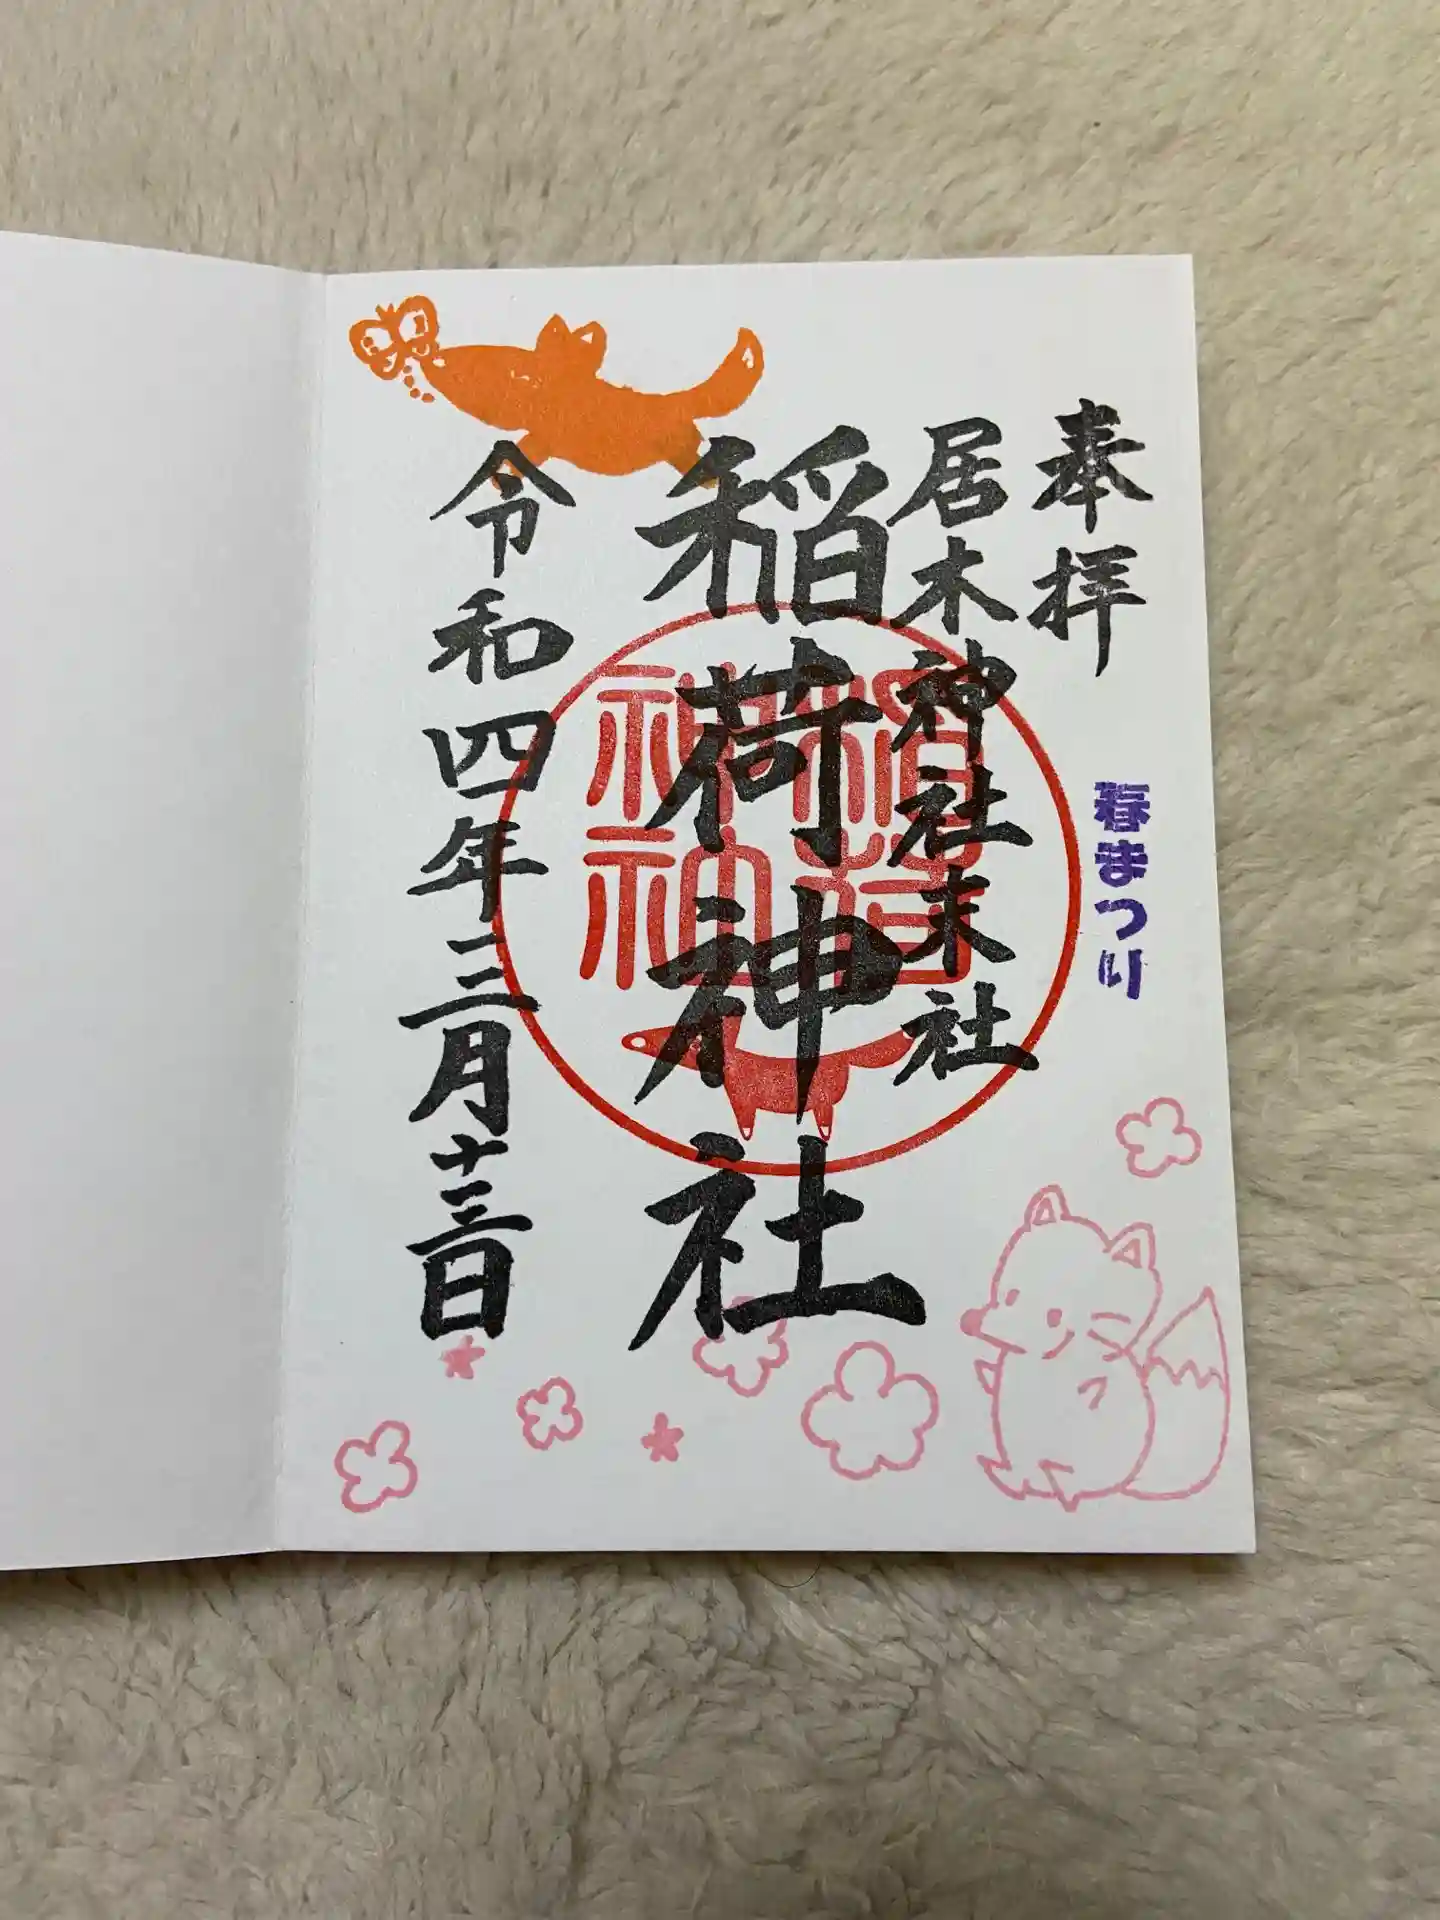 奉拝
春まつり
居木神社末社
稲荷神社
稲荷
神社
令和四年三月十三日